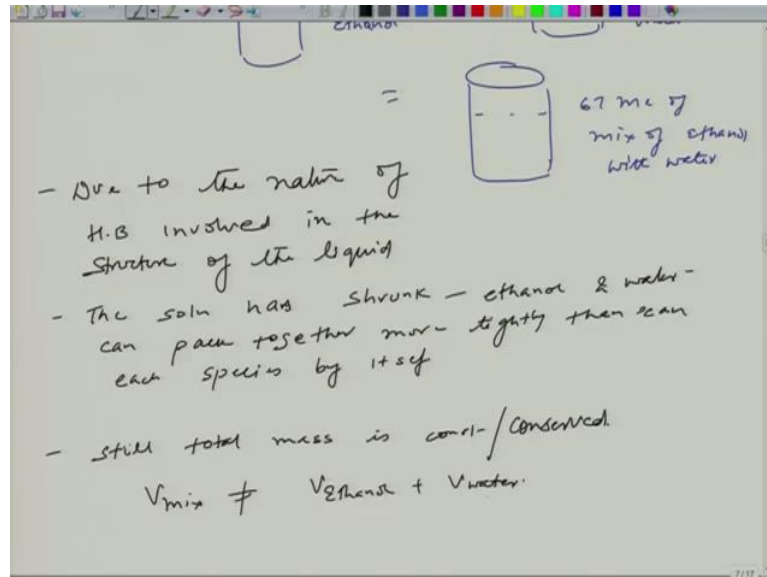 Ethanol
=
67 mL of
mix of Ethanol
with water
- Due to the nature of
H.B involved in the
structure of the liquid
- The soln has shrunk - ethanol & water -
can pack together more tightly than can
each species by itself
- still total mass is const/conserved.
Vmix ≠ VEthanol + Vwater.
7/17